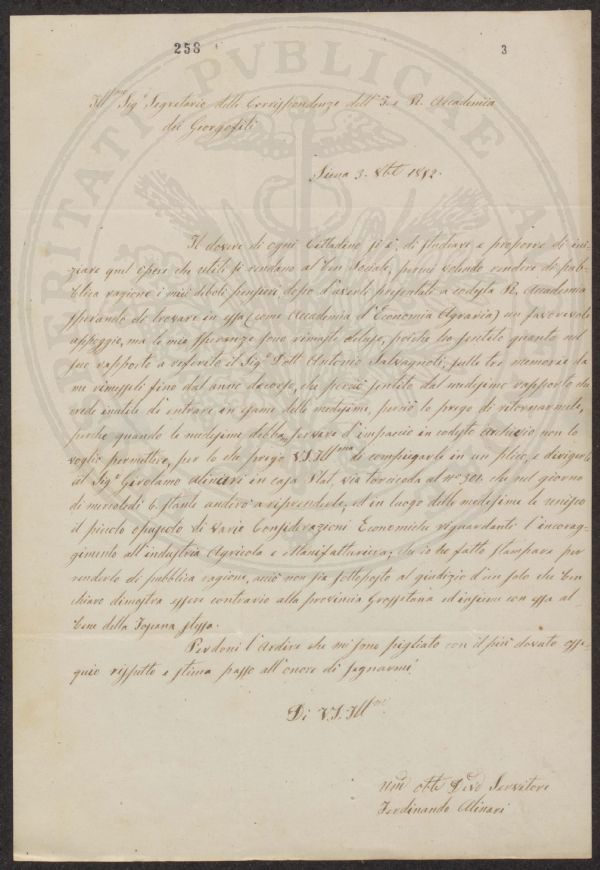 258
3
Ill.mo Sig.r Segretario delle Corrispondenze dell' I. e R. Accademia
dei Georgofili
Siena 3. 8bre 1842.
Il dovere di ogni Cittadino si è, di studiare e proporre di ini-
ziare quell opere che utili si rendano al ben Sociale, perciò volendo rendere di pub-
blica ragione i miei deboli pensieri dopo d'averli presentati a codesta R. Accademia
sperando di trovare in essa (come Accademia d'Economia Agraria) un favorevole
appoggio, ma le mie speranze sono rimaste deluse, poichè ho sentito quanto nel
suo rapporto a referito il Sig.r Dott Antonio Salvagnoli, sulle tre memorie da
me rimesseli fino dal anno decorso, che perciò sentito dal medesimo rapporto che
crede inutile di entrare in esame delle medesime, perciò lo prego di ritornarmele,
perchè quando le medesime debba servire d'impaccio in codesto Archivio non lo
voglio permettere, per lo che prego V.S. Ill.ma di compiegarle in un plico, e dirigerle
al Sig.r Girolamo Alinari in casa via torcicoda al no 301. che nel giorno
di mercoledi 6. stante anderò a riprenderle, ed in luogo delle medesime le rimesco
il piccolo opuscolo di Varie Considerazioni Economiche riguardanti l'incorag-
gimento all'industria Agricola e Manifatturiera, che io ho fatto stampare per
renderlo di pubblica ragione, acciò non sia sottoposto al giudizio d'un solo che ben
chiaro dimostra essere contrario alla provincia Grossetana ed insieme con essa al
bene della Toscana stessa.
Perdoni l'Ardire che mi sono pigliato con il più dovuto osse-
quio rispetto e stima passo all'onore di segnarmi
Di V.S. Ill.ma
Umo Obbo Devo Servitore
Ferdinando Alinari
PERITATI PVBLICAE AV